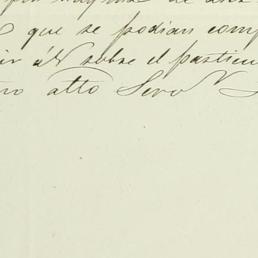 que se podian comp
ir á V sobre el particu
ro atto Servr